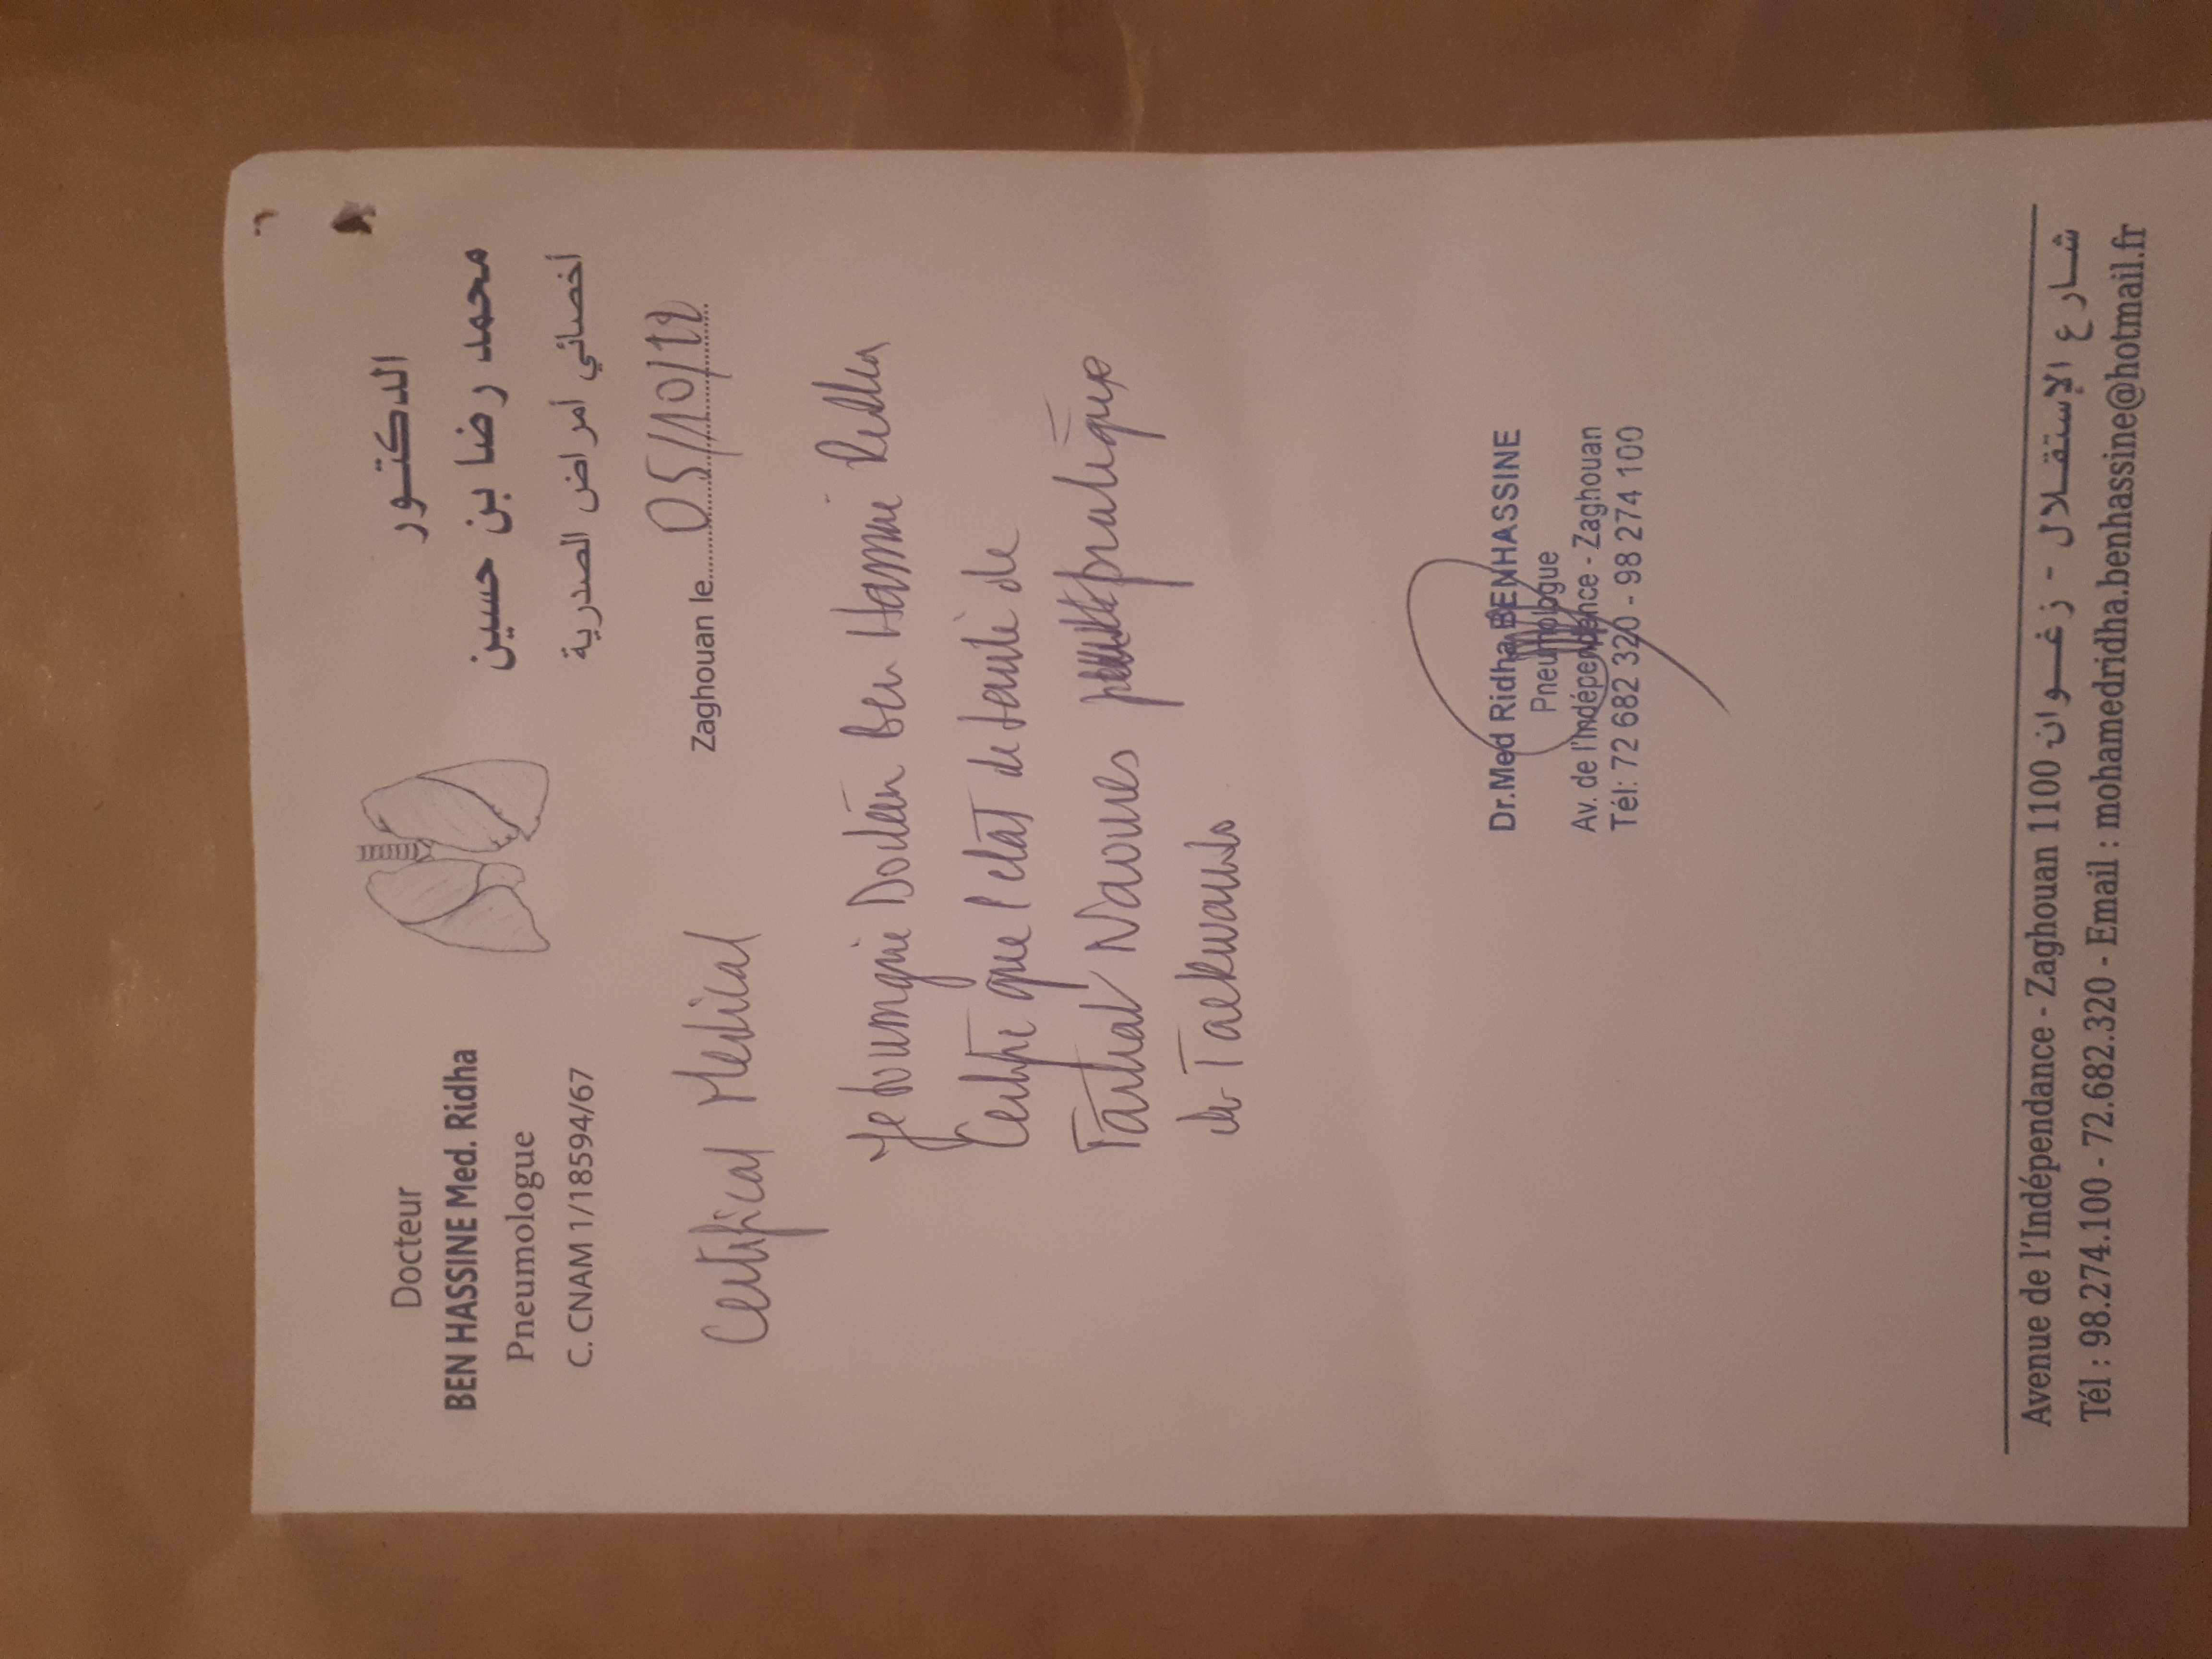 Docteur
BEN HASSINE Med. Ridha
Pneumologue
C. CNAM 1/18594/67
الدكتور
محمد رضا بن حسين
أخصائي أمراض الصدرية
Zaghouan le 05/10/22
Certificat Medical
Je soussigné Docteur Ben Hassine Ridha
Certifie que l'etat de santé de
Naoures pratique
de Taekwando
Dr.Med Ridha BENHASSINE
Pneumologue
Av. de l'Indépendance - Zaghouan
Tél: 72 682 320 - 98 274 100
Avenue de l'Indépendance - Zaghouan 1100 شارع الإستقلال - زغوان
Tél : 98.274.100 - 72.682.320 - Email : mohamedridha.benhassine@hotmail.fr